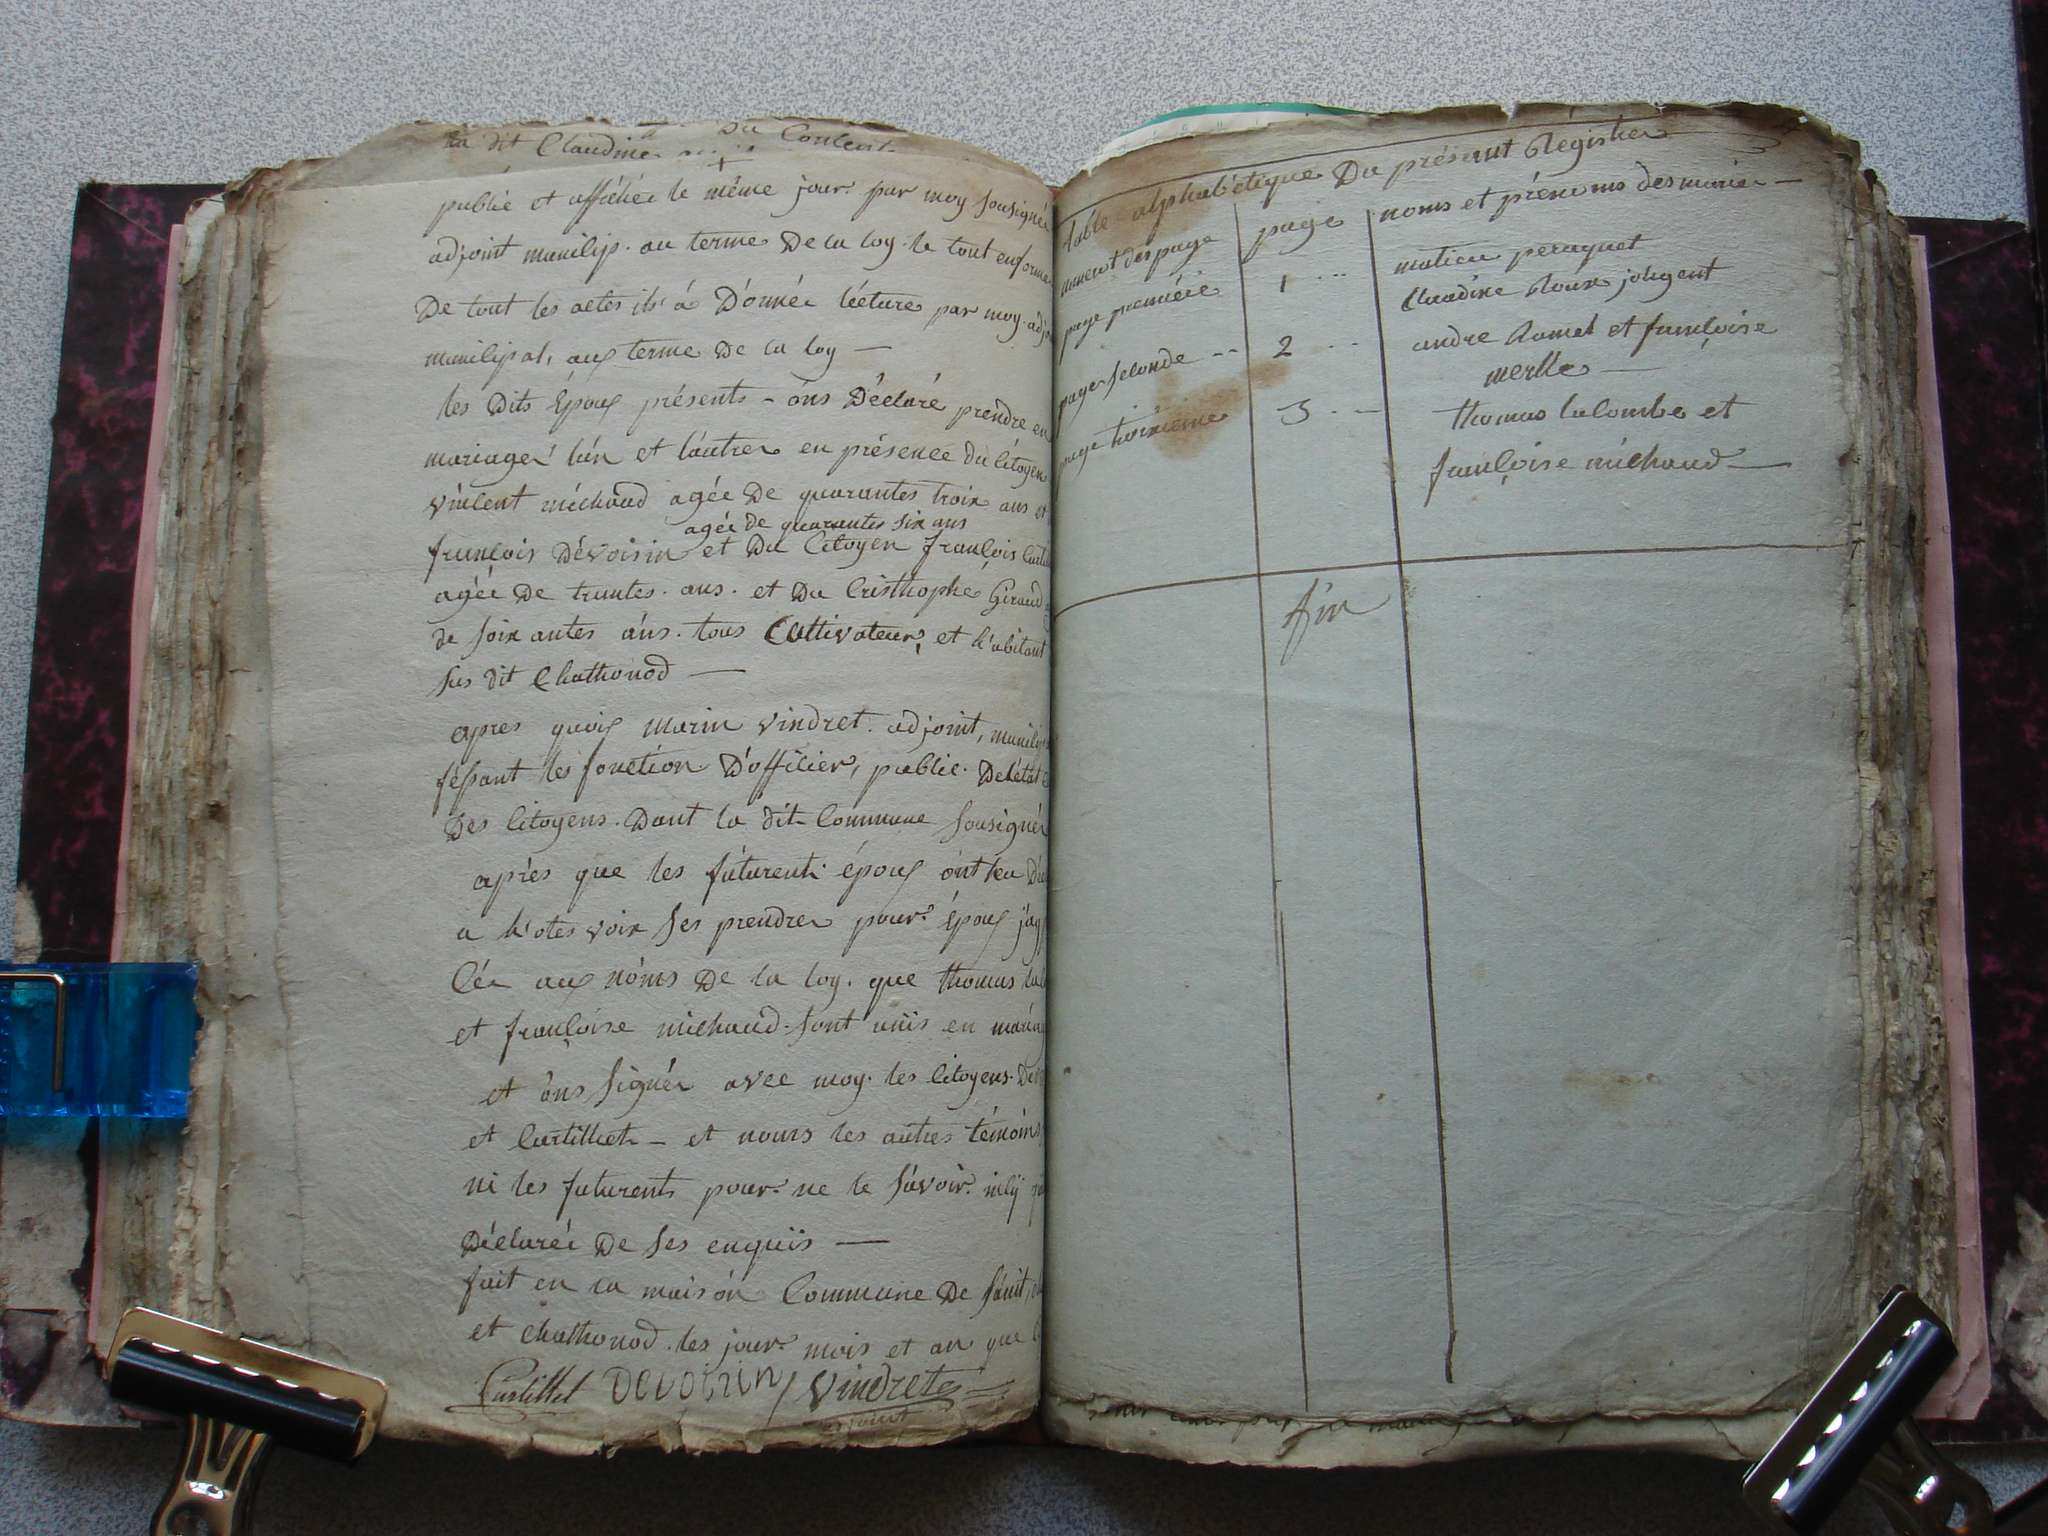 dit Claudine
publié et affichée le même jour par moy sousignée
adjoint manilip. au terme De la loy. le tout enforme
De tout les actes ils á D'onnée lécture par moy. adj
manilipal, aux terme De la loy —
les Dits Époux présents – óns Décláré prendre en
mariager lún et láutrer en présence du Citoyen
vinlent michaud agée De quarantes troix ans et
agée de quarantes six ans
franlois Dévoisin et Du Citoyen franlois
agée De trantes. ans. et Du Cristhophe Giraud
de soix antes áns. tous Cultivateur, et h'abitant
sus dit Chathonod —
apres quoix marin vindret. adjoint, manilip
fésant les fonction D'offilier, public. Delétat
Des Citoyens. Dant la dit Commune sousignée
après que les fúturent époux ónt
a h'otes voix ses prendrer pour époux j'ag
Cée aux nóms De la loy. que thomas
et franloise michaud. sont uniis en maria
et óns signée avec moy. les Citoyens.
et Curtillet – et nouns les autres témoins
ni les futurents pour ne le savoir.
Déclarée De ses enquiis —
fait en la maisón Commune De Sánit,
et chathonod. les jour mois et an que
Curtillet Devoisin / vindret
adjoint
table alphabétique Du présent Régister
numerot des page page noms et prénoms des marier —
page première 1 ... matieu peraquet
Claudine Roux joligent
page selonde -- 2 .. andre Ramel et franloise
merlle —
page troixieme 3 .. thomas lalombe et
franloise michaud —
fin